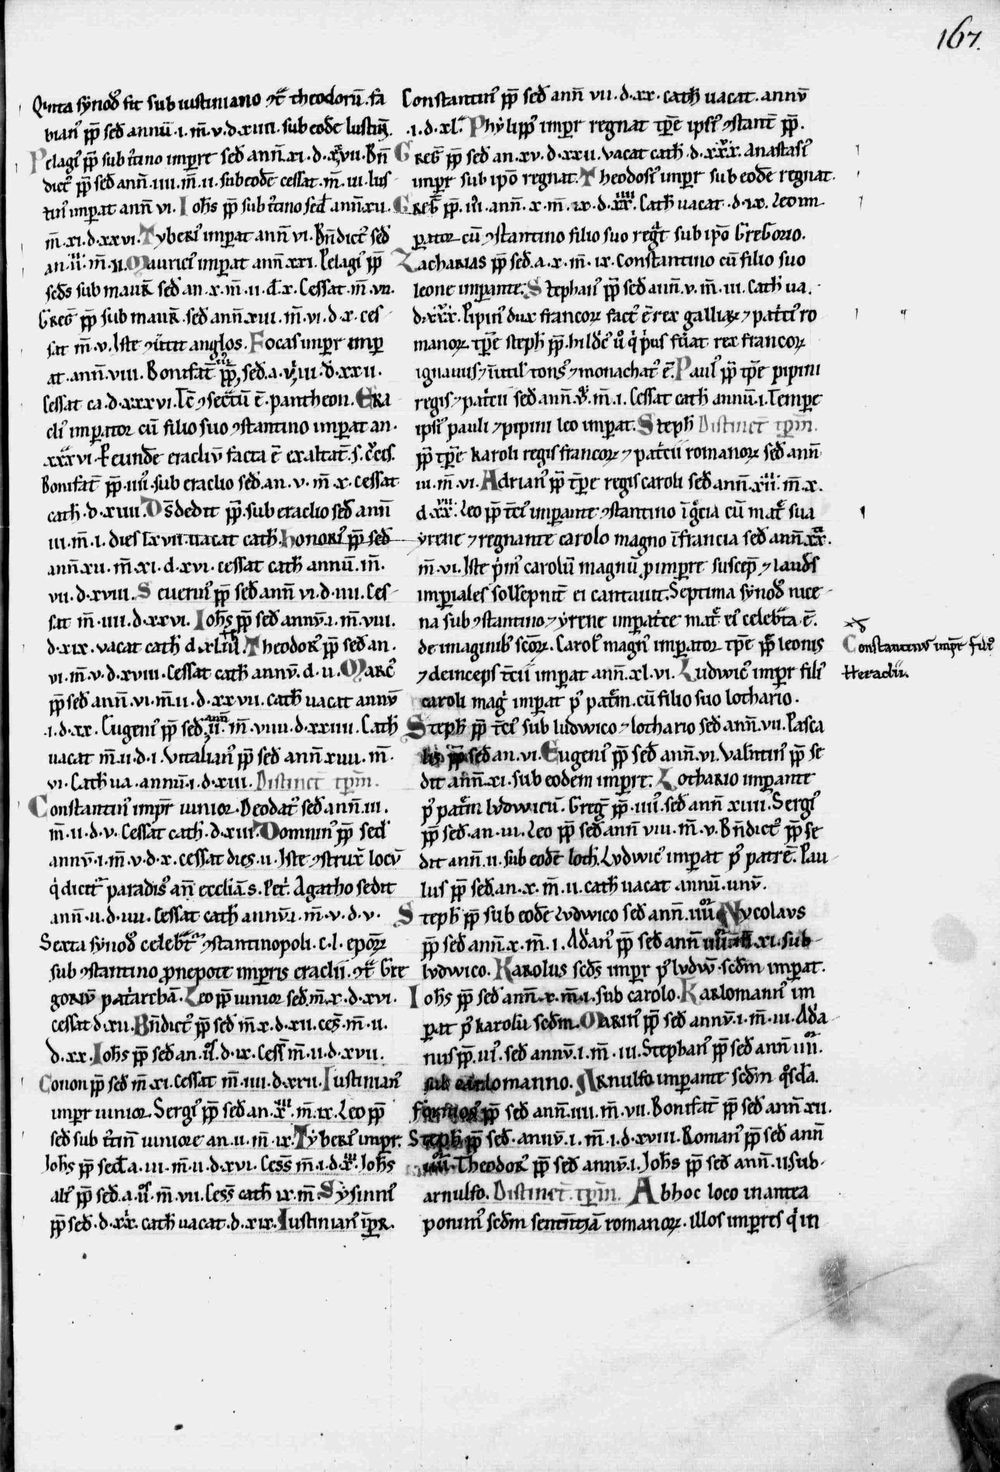 167.
Quita synod' fit sub iustiniano 7c̄ theodorū. fa
bian' pp̄ sed annū .i. m̄. v. d. xiiii. sub eodē Iustin̄.
Pelagi' pp̄ sub t̄tino imp̄re sed ann̄. xi. d. xxvii. Bn̄
dict' pp̄ sed ann̄. iiii. m̄. ii. sub eodē cessat. m̄. iii. Ius
tin' imp̄at ann̄ vi. Ioħs pp̄ sub t̄tino sed ann̄. xii.
m̄. xi. d. xxvi. Tyberi' imp̄at ann̄ vi. Bn̄dict' sed
an. iiii. m̄. ii. Maurici' imp̄at ann̄. xxi. Pelagi' pp̄
scds sub maur̄ sed an. x. m̄. ii. d. x. Cessat. m̄. vii.
Greg' pp̄ sub maur̄. sed ann̄. xiii. m̄. vi. d. x. ces
sat m̄. v. Iste 9ūtit anglos. Focas imper imp
at. ann̄. viii. Bonifat' pp̄, sed. a. viii. d. xxii.
Cessat ca. d. xxxvi. Tc̄ 9secratū ē. pantheon. Era
cli' imp̄ator cū filio suo 9stantino imp̄at an.
.xxxvi. Et eunde eracliū facta ē exaltat̄. s. c̄cis.
Bonifat' pp̄. iiii' sub eraclio sed. an. v. m̄. x. cessat
cath. d. xiii. Ds̄dedit pp̄. sub eraclio sed ann̄
iii. m̄. i. dies lxvii. uacat cath. honori' pp̄ sed
ann̄. xii. m̄. xi. d. xvi. cessat cath annū. m̄.
vii. d. xviii. Seuerin' pp̄ sed ann̄ vi. d. iiii. Ces
sat m̄. iiii. d. xxvi. Ioħs pp̄ sed annv̄. i. m̄. viii.
d. xix. vacat cath d. xliii. Theodor' pp̄ sed an.
vi. m̄. v. d. xviii. Cessat cath annv̄. d. ii. Marc'
pp̄ sed ann̄. vi. m̄. ii. d. xxvii. cath vacat annv̄
.i. d. xx. Eugeni' pp̄ sed. ii. m̄. viiii. d. xxiiii. Cath
uacat m̄. ii. d. i. Vitalian' pp̄ sed ann̄ xiiii. m̄.
vi. Cath ua. annū. i. d. xiii. Distinct' tp̄m̄.
Constantin' imp̄r iunior. Deodat' sed ann̄. iii.
m̄. ii. d. v. Cessat cath. d. xiii. Domnin' pp̄ sed
annv̄. i. m̄. v. d. x. cessat dies. ii. Iste 9strux̄ locv̄
q̇ dicit' paradis' an̄ eccliā. s. Pet̄. Agatho sedit
ann̄. ii. d. iiii. Cessat cath annv̄. i. m̄. v. d. v.
Sexta synod' celebr̄t' 9stantinopoli. c. l. ep̄or̄
sub 9stantino pronepote imp̄ris eraclii. 7c̄ Gre
goriv̄ pat̄archā. Leo pp̄ iunior sed. m̄. x. d. xvi.
cessat d. xii. Bn̄dict' pp̄ sed m̄. x. d. xii. ces̄. m̄. ii.
d. xx. Ioħs pp̄ sed an. ii'. d. ix. Cess̄ m̄. ii. d. xvii.
Conon pp̄ sed m̄. xi. Cessat m̄. iiii. d. xxii. Iustinian'
imp̄r iunior. Sergi' pp̄ sed an. xiii. m̄. ix. Leo pp̄
sed sub t̄tin̄ iuniore an. ii. m̄. ix. Tyberi' imp̄r.
Ioħs pp̄ sed. a. iii. m̄. ii. d. xvi. Cess̄ m̄. i. d. xx. Ioħs
ali' pp̄ sed. a. ii'. m̄. vii. Cess̄ cath ix. m̄. Sysinni'
pp̄ sed. d. xx. cath vacat. d. xix. Iustinian' ip̄r.
Constantin' pp̄ sed ann̄ vii. d. xx. cath uacat. annv̄
.i. d. xl. Phylipp' imp̄r regnat tp̄e ipsi' 9stant̄ pp̄.
Greg' pp̄ sed an. xv. d. xxii. vacat cath. d. xxx. Anastasi'
imp̄r sub ip̄o regnat. Theodosi' imp̄r sub eodē regnat.
Greg' pp̄. iii' ann̄. x. m̄. ix. d. xx. Cath vacat. d. ix. Leo im
p̄ator cū 9stantino filio suo reg̅t sub ip̄o Gregorio.
Zacharias pp̄ sed. a. x. m̄. ix. Constantino cū filio suo
leone imp̄ante. Stephan' pp̄ sed ann̄. v. m̄. iii. Cath ua.
d. xxx. Pipin' dux francor̄ fact' ē rex galliar̄ 7 pat̄ti' ro
manor̄. tp̄e steph pp̄. hilde' ū q̇ p̄us fuat. rex francor̄
ignauus 7 īutil' tons' 7 monachat' ē. Paul' pp̄ tp̄e pipini
regis 7 pat̄cii sed ann̄. x. m̄. i. Cessat cath annū. i. Tempe
ipsi' pauli 7 pipini leo imp̄at. Steph Distinct' tp̄m̄.
pp̄ tp̄e karoli regis francor̄ 7 pat̄cii romanor̄ sed ann̄
iii. m̄. vi. Adrian' pp̄ tp̄e regis caroli sed ann̄. xxiii. m̄. x.
d. xx. Leo pp̄ tci' imp̄ante 9stantino ī g̅cia cū mat̄ sua
yrene 7 regnante carolo magno ī francia sed ann̄. xx.
m̄. vi. Iste p̄im' carolū magnū p imp̄re suscep̄ 7 lauds
imperiales sollēpnit̄ ei cantauit. Septima synod' nice
na sub 9stantino 7 yrene imp̄at̄ce mat̄ ei' celebr̄ta ē.
de imaginib' scōr̄. Carol' magn' imp̄ator tp̄e pp̄ leonis
7 deinceps tcii imp̄at ann̄. xl. vi. Ludwic' imp̄r fili'
caroli mag̅ imp̄at p' pat̄m. cū filio suo lothario.
Steph pp̄ tci' sub ludwico 7 lothario sed ann̄. vii. Pasca
lis pp̄ sed an. vi. Eugeni' pp̄ sed ann̄. vi. Valentin' pp̄ se
dit ann̄. xi. sub eodem imp̄re. Lothario imp̄ante
p' pat̄m lvdwicū. Greg' pp̄. iiii'. sed ann̄ xiiii. Sergi'
pp̄ sed. an. iii. Leo pp̄ sed ann̄ viii. m̄. v. Bn̄dict' pp̄ se
dit ann̄. ii. sub eodē loth. Lvdwic' imp̄at p' patrē. Pau
lus pp̄ sed an. x. m̄. ii. cath vacat annū. unv̄.
Steph pp̄ sub eodē lvdwico sed ann̄. iiii. Nycolavs
pp̄ sed ann̄. x. m̄. i. Adrian' pp̄ sed ann̄ xi. sub
lvdwico. Karolus scds imp̄r p' lvdw̄. scdm imp̄at.
Ioħs pp̄ sed ann̄. x. m̄. i. sub carolo. Karlomann' im
p̄at p' karolū scdm. Marin' pp̄ sed annv̄. i. m̄. iii. Adria
nus pp̄. iii'. sed annv̄. i. m̄. iii. Stephan' pp̄ sed ann̄ iiii.
sub carlomanno. Arnulfo imp̄ante scdm q'sdā.
Formos' pp̄ sed ann̄. iiii. m̄. vii. Bonifat' pp̄ sed ann̄. xii.
Steph pp̄ sed. annv̄. i. m̄. i. d. xviii. Roman' pp̄ sed ann̄
Theodor' pp̄ sed annv̄. i. Ioħs pp̄ sed ann̄. ii sub
arnulfo. Distinct'. tp̄m̄. Abhoc loco in antea
ponim' scdm sentn̄tiā romanor̄. illos imp̄res q̇ in
Constantinus imp̄r fili'
Heraclii.